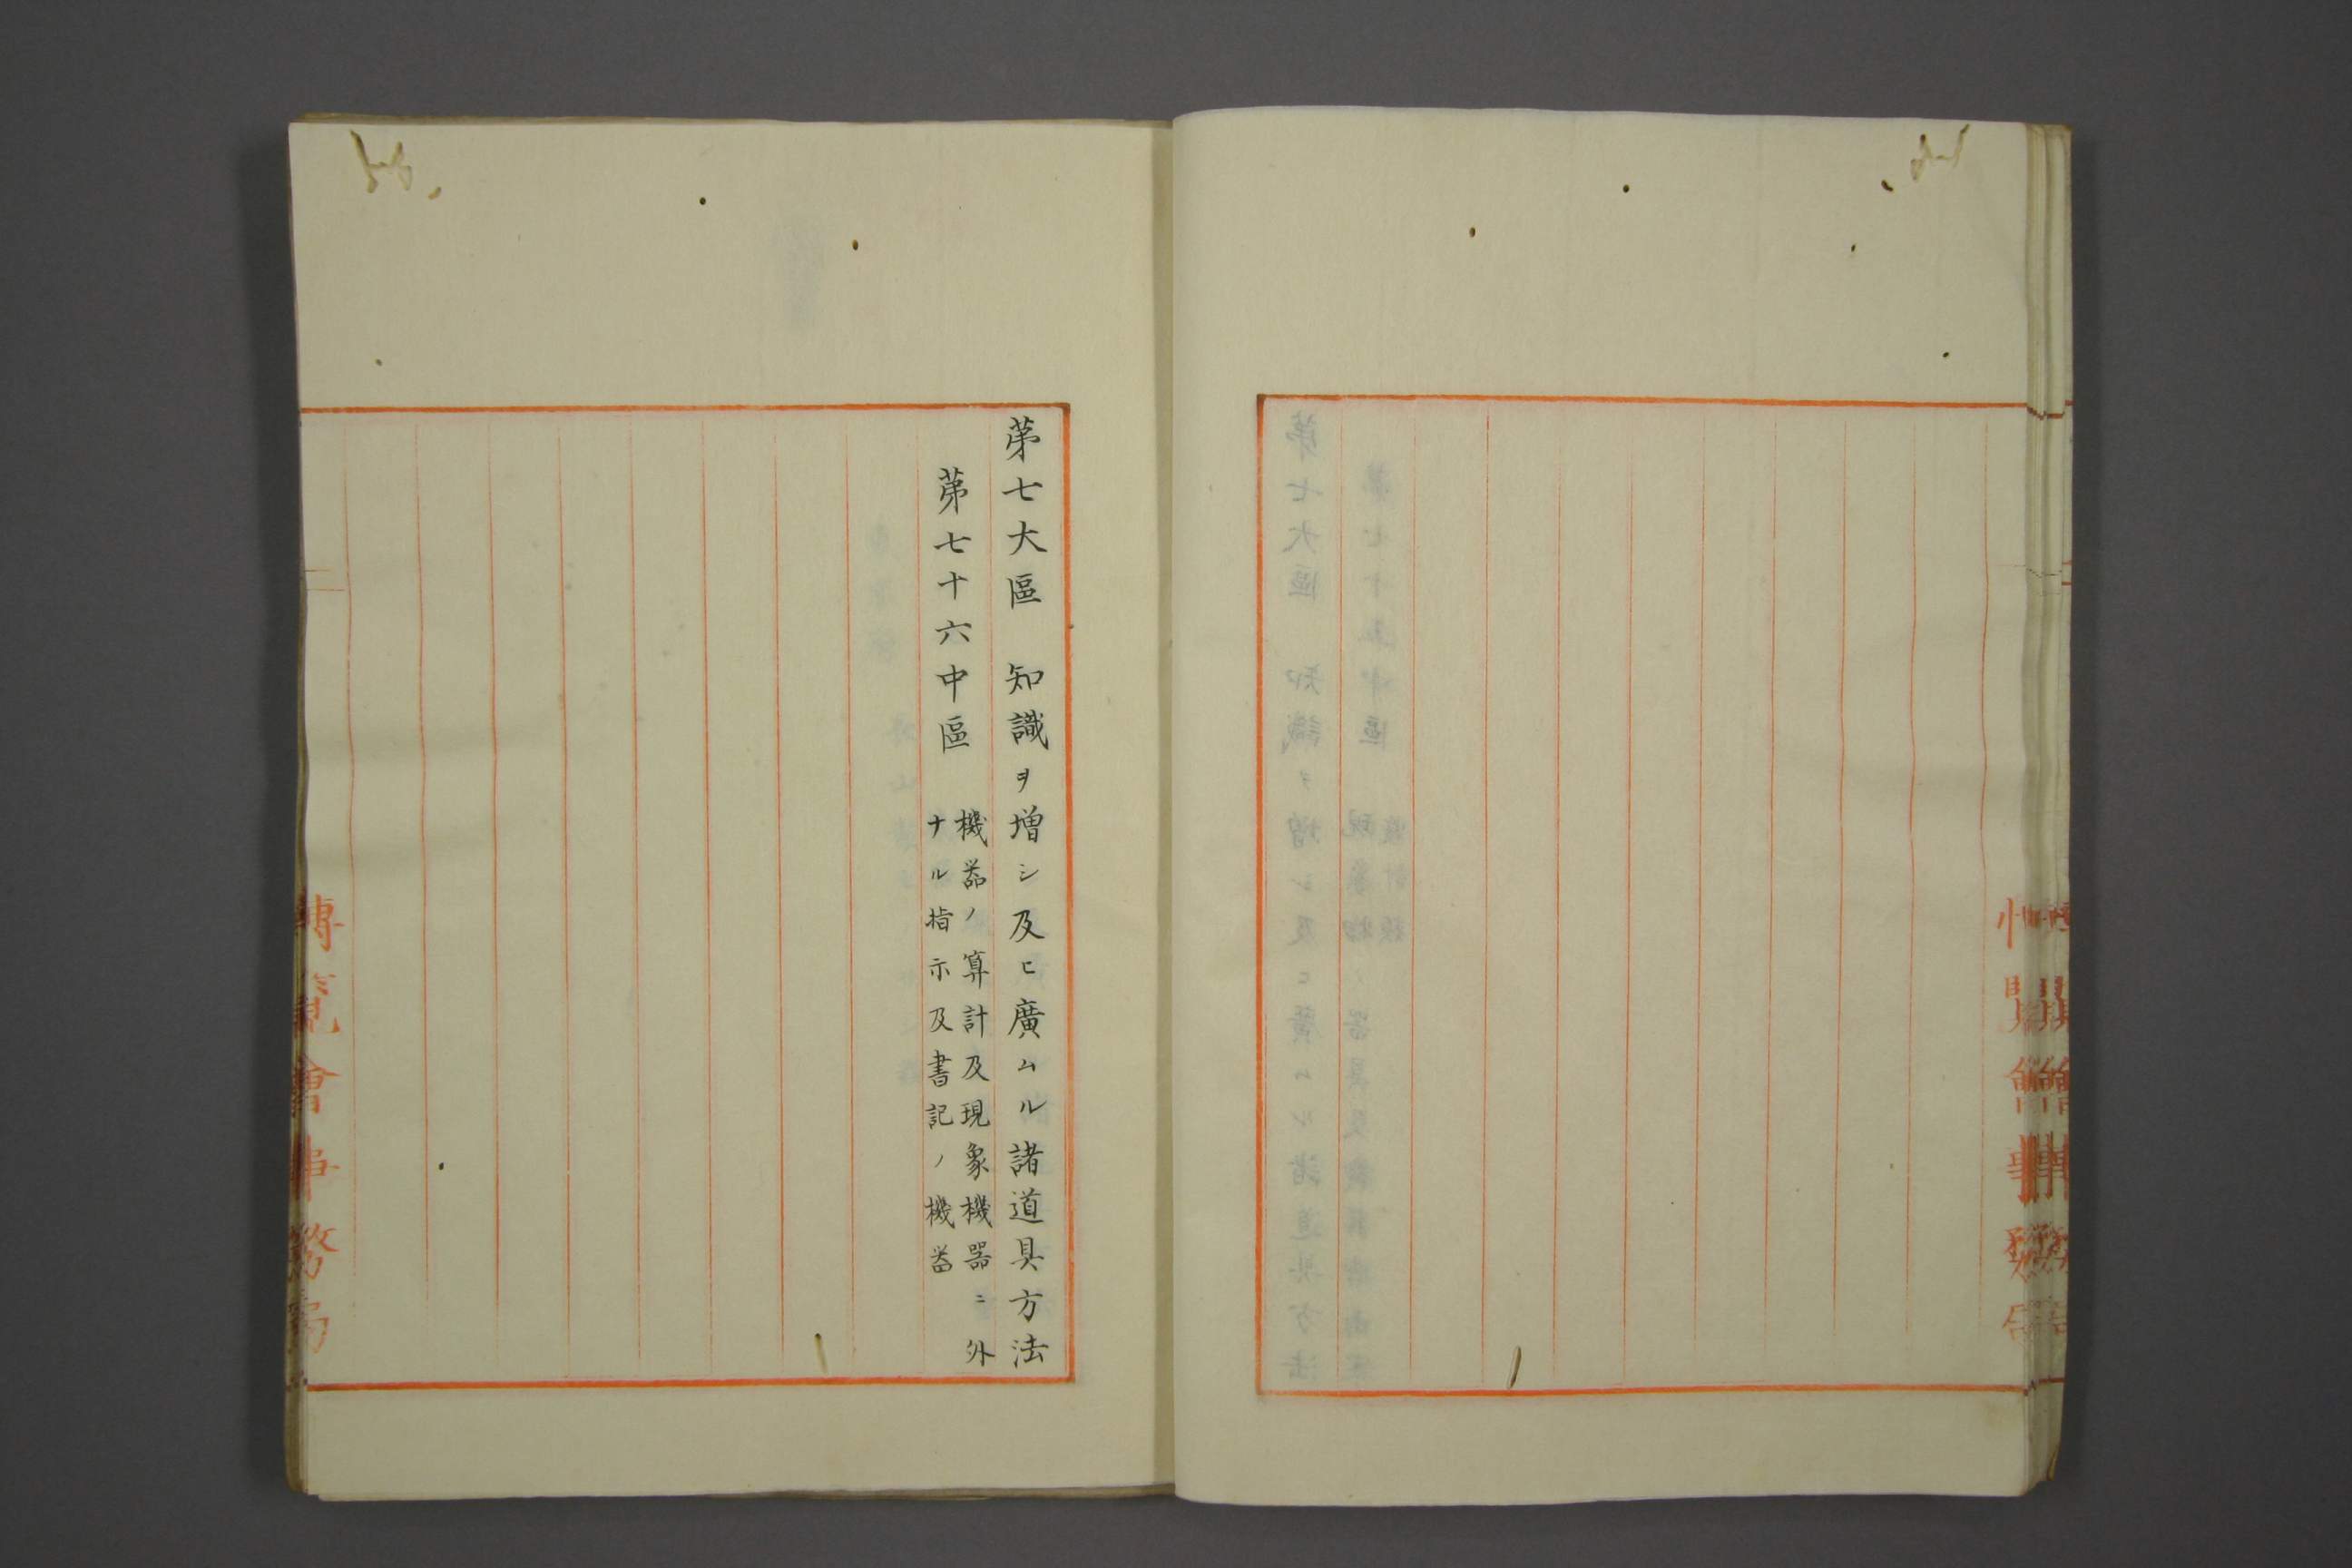 第七大區　知識ヲ増シ及ヒ廣ムル諸道具方法
第七十六中區
機器ノ算計及現象機器ニ外
ナル指示及書記ノ機器
博覧會事務局